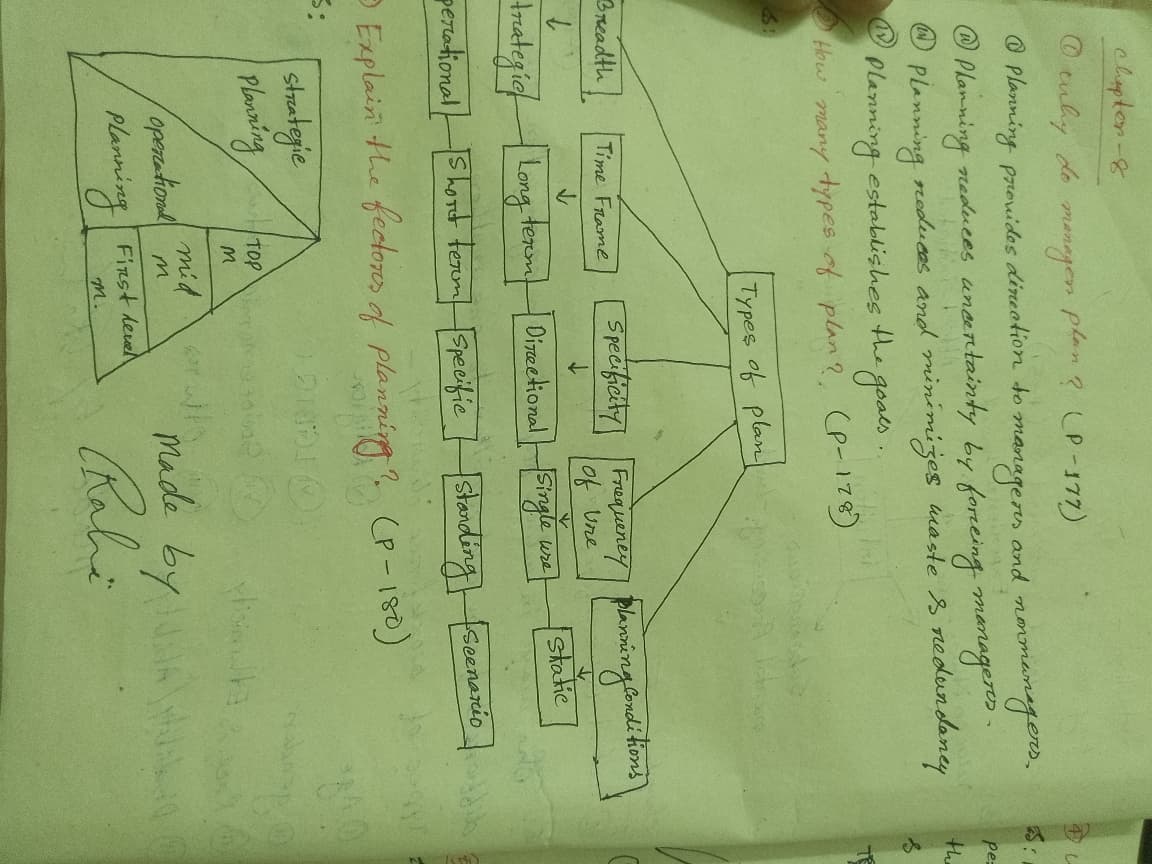 Chapter-8
① Why do managers plan? (P-177)
① Planning provides direction to managers and nonmanagers.
② Planning reduces uncertainty by forceing managers.
③ Planning reduces and minimizes waste & redundancy
④ Planning establishes the goals.
② How many types of plan? (P-178)
S:
Types of plan
Breadth Time Frame Specificity Frequency of use Planning Conditions
Strategic Long term Directional Single use Static
Operational Short term Specific Standing Scenario
Explain the fectors of planning? (P-180)
S:
Strategic planning
Top M
operational planning
mid M
First level m.
Made by
(Rahi